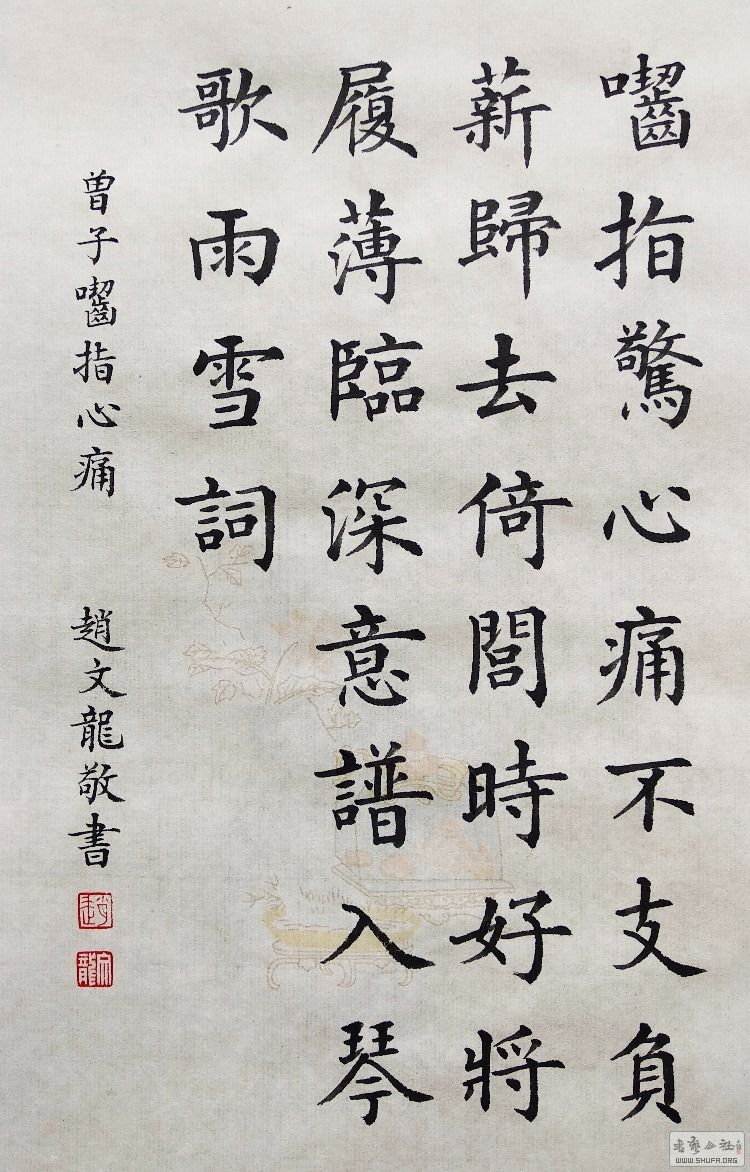 嚙指驚心痛不支負
薪歸去倚閭時好將
履薄臨深意譜入琴
歌雨雪詞
曾子嚙指心痛
趙文龍敬書
書藝公社
WWW.SHUFA.ORG